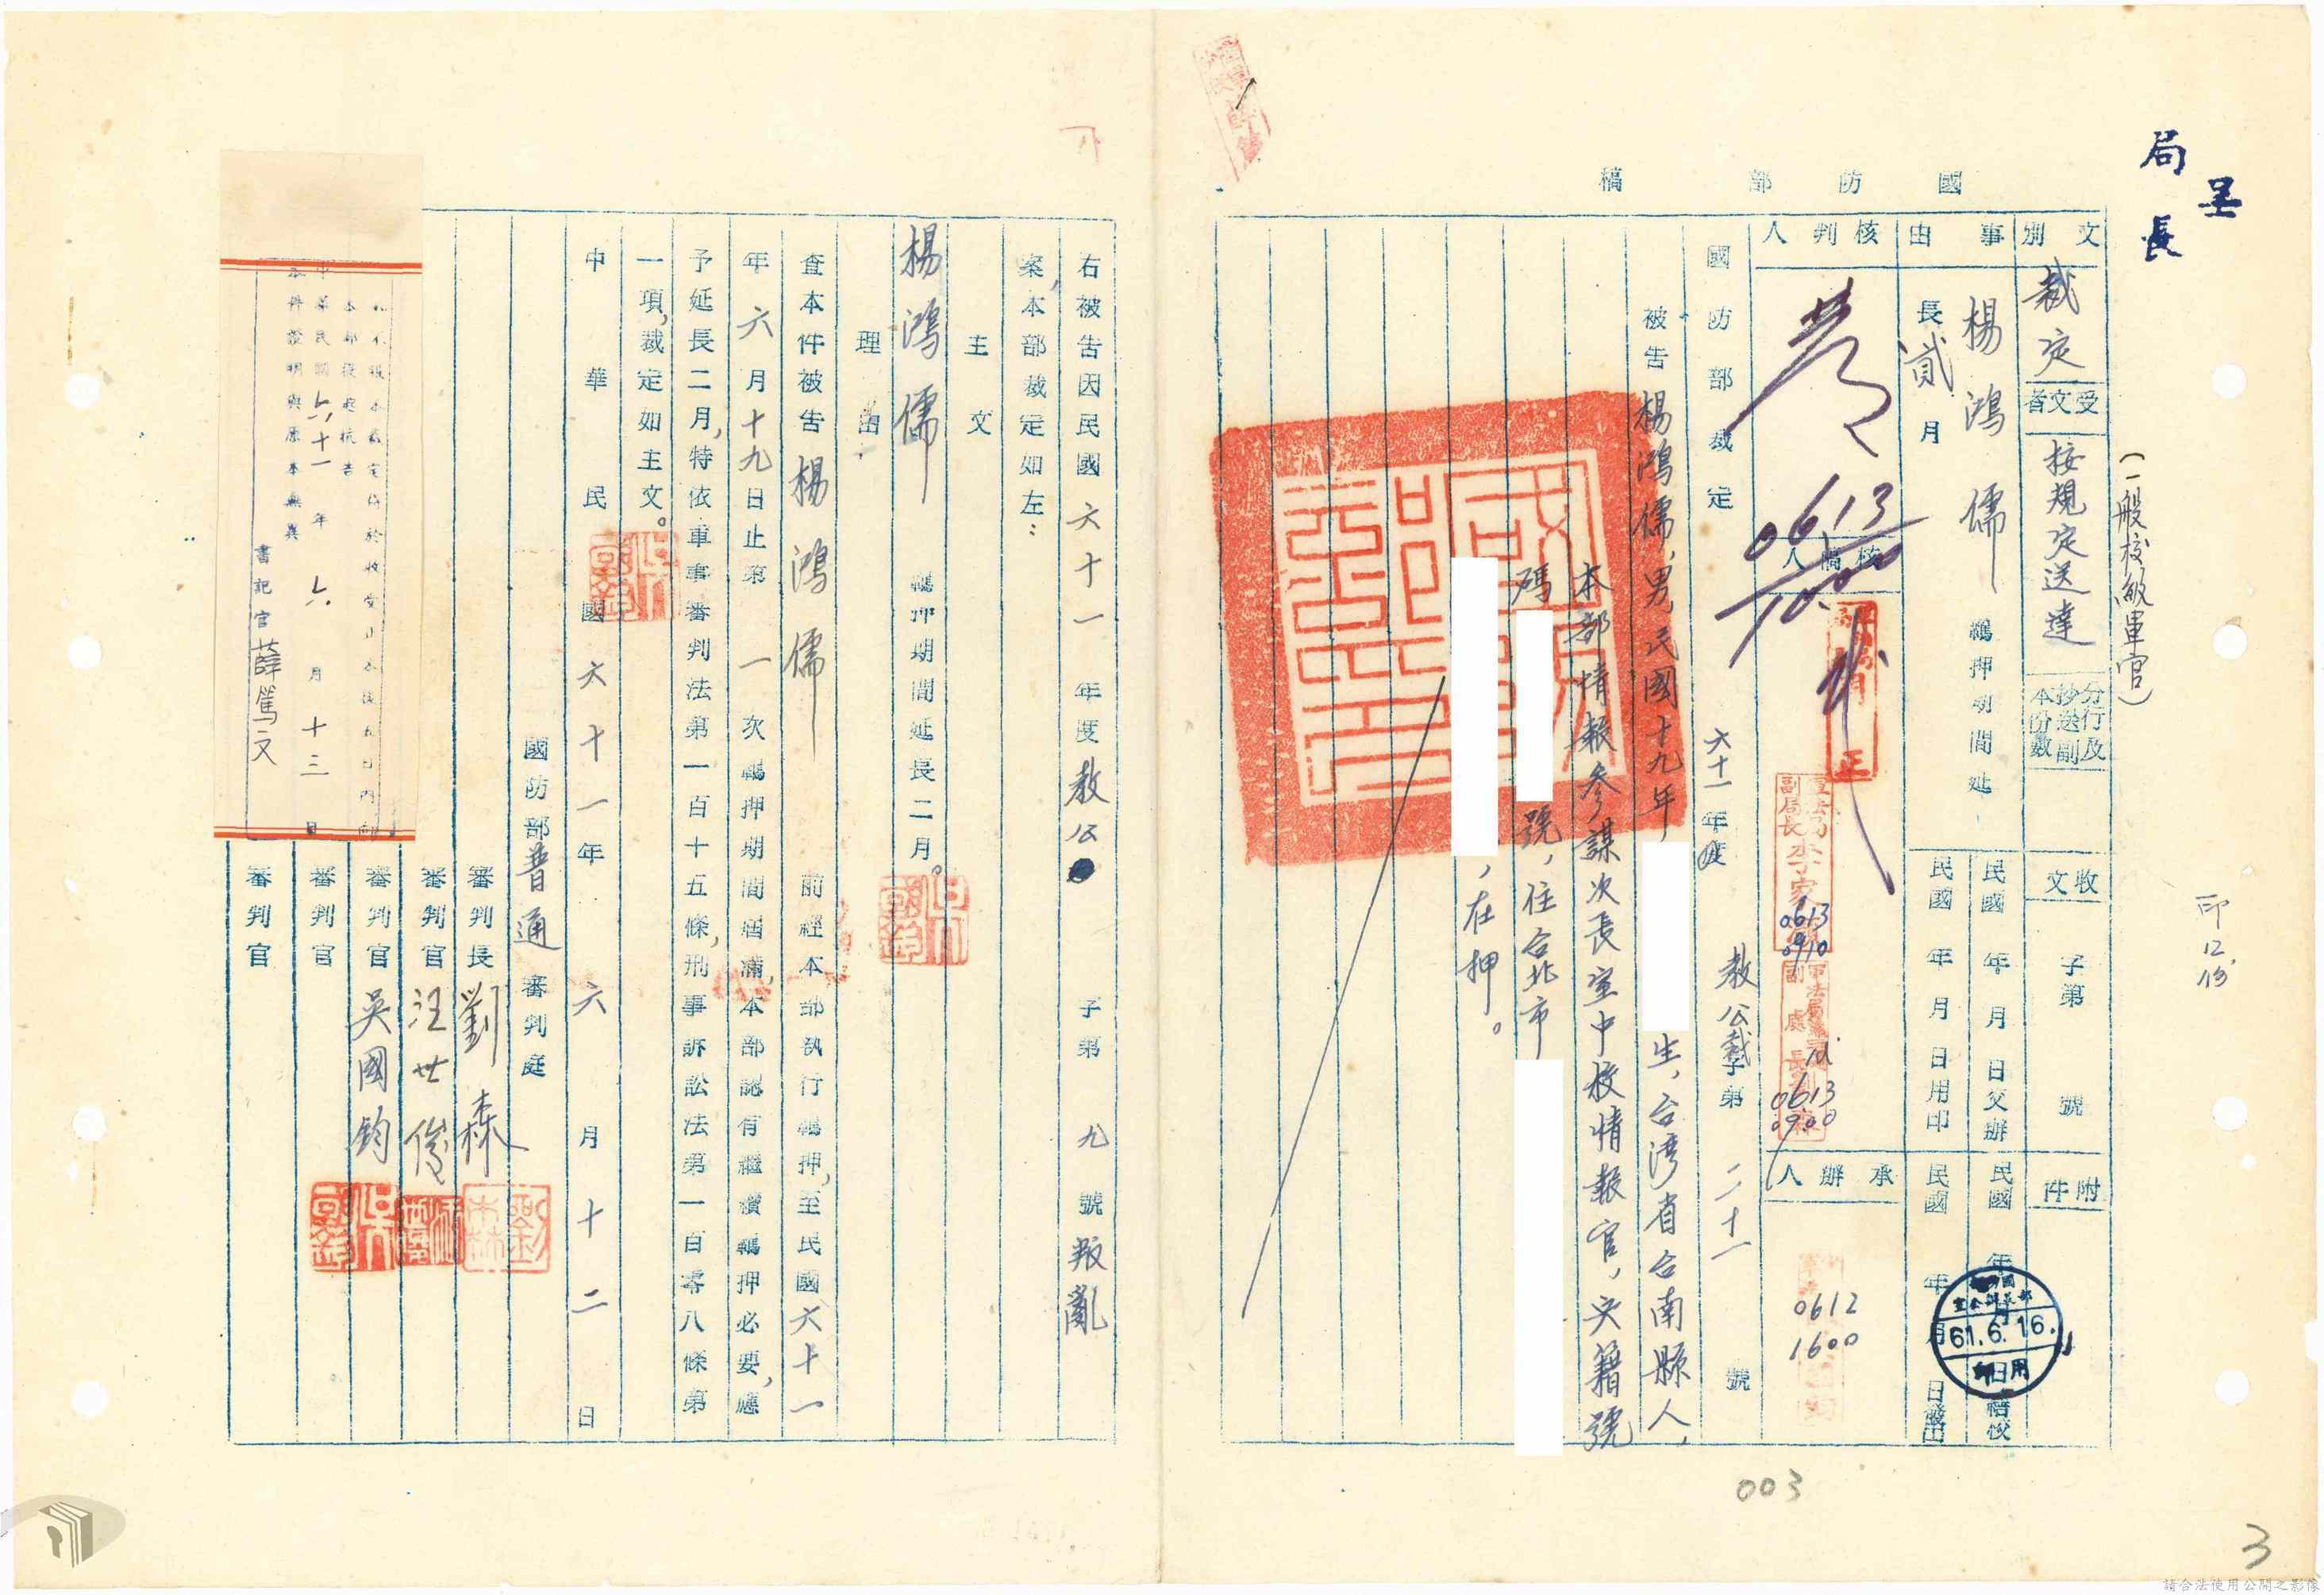 呈
局長
(一般校級軍官)
印12份
國防部稿
文別
裁定
受文者
按規定送達
分行及抄送副本份數
收文
字第
號
附件
事由
楊鴻儒
羈押期間延長貳月
民國 年 月 日交辦
民國 年 月 日用印
民國 年
民國 年 月 日發出
61.6.16.
用印
核判人
0613
10.00
核稿人
軍法局副局長李家
0613
0910
0613
09.00
承辦人
0612
1600
國防部裁定
六十一年度
教公裁字第二十一號
被告楊鴻儒,男,民國十九年
生,台湾省台南縣人,
本部情報參謀次長室中校情報官,失籍號
碼
號,住台北市
,在押。
右被告因民國六十一年度教公
字第九號叛亂
案,本部裁定如左:
主文
楊鴻儒
羈押期間延長二月。
理由
查本件被告楊鴻儒
前經本部執行羈押,至民國六十一
年六月十九日止第一次羈押期間屆滿,本部認有繼續羈押必要,應
予延長二月,特依軍事審判法第一百十五條,刑事訴訟法第一百零八條第
一項,裁定如主文。
中華民國六十一年六月十二日
國防部普通審判庭
審判長劉森
審判官汪世俊
審判官吳國鈞
審判官
審判官
如不服本裁定得於收受正本後五日內向
本部複庭抗告
中華民國六十一年六月十三日
本件證明與原本無異
書記官薛篤文
003
3
請合法使用公開之影像